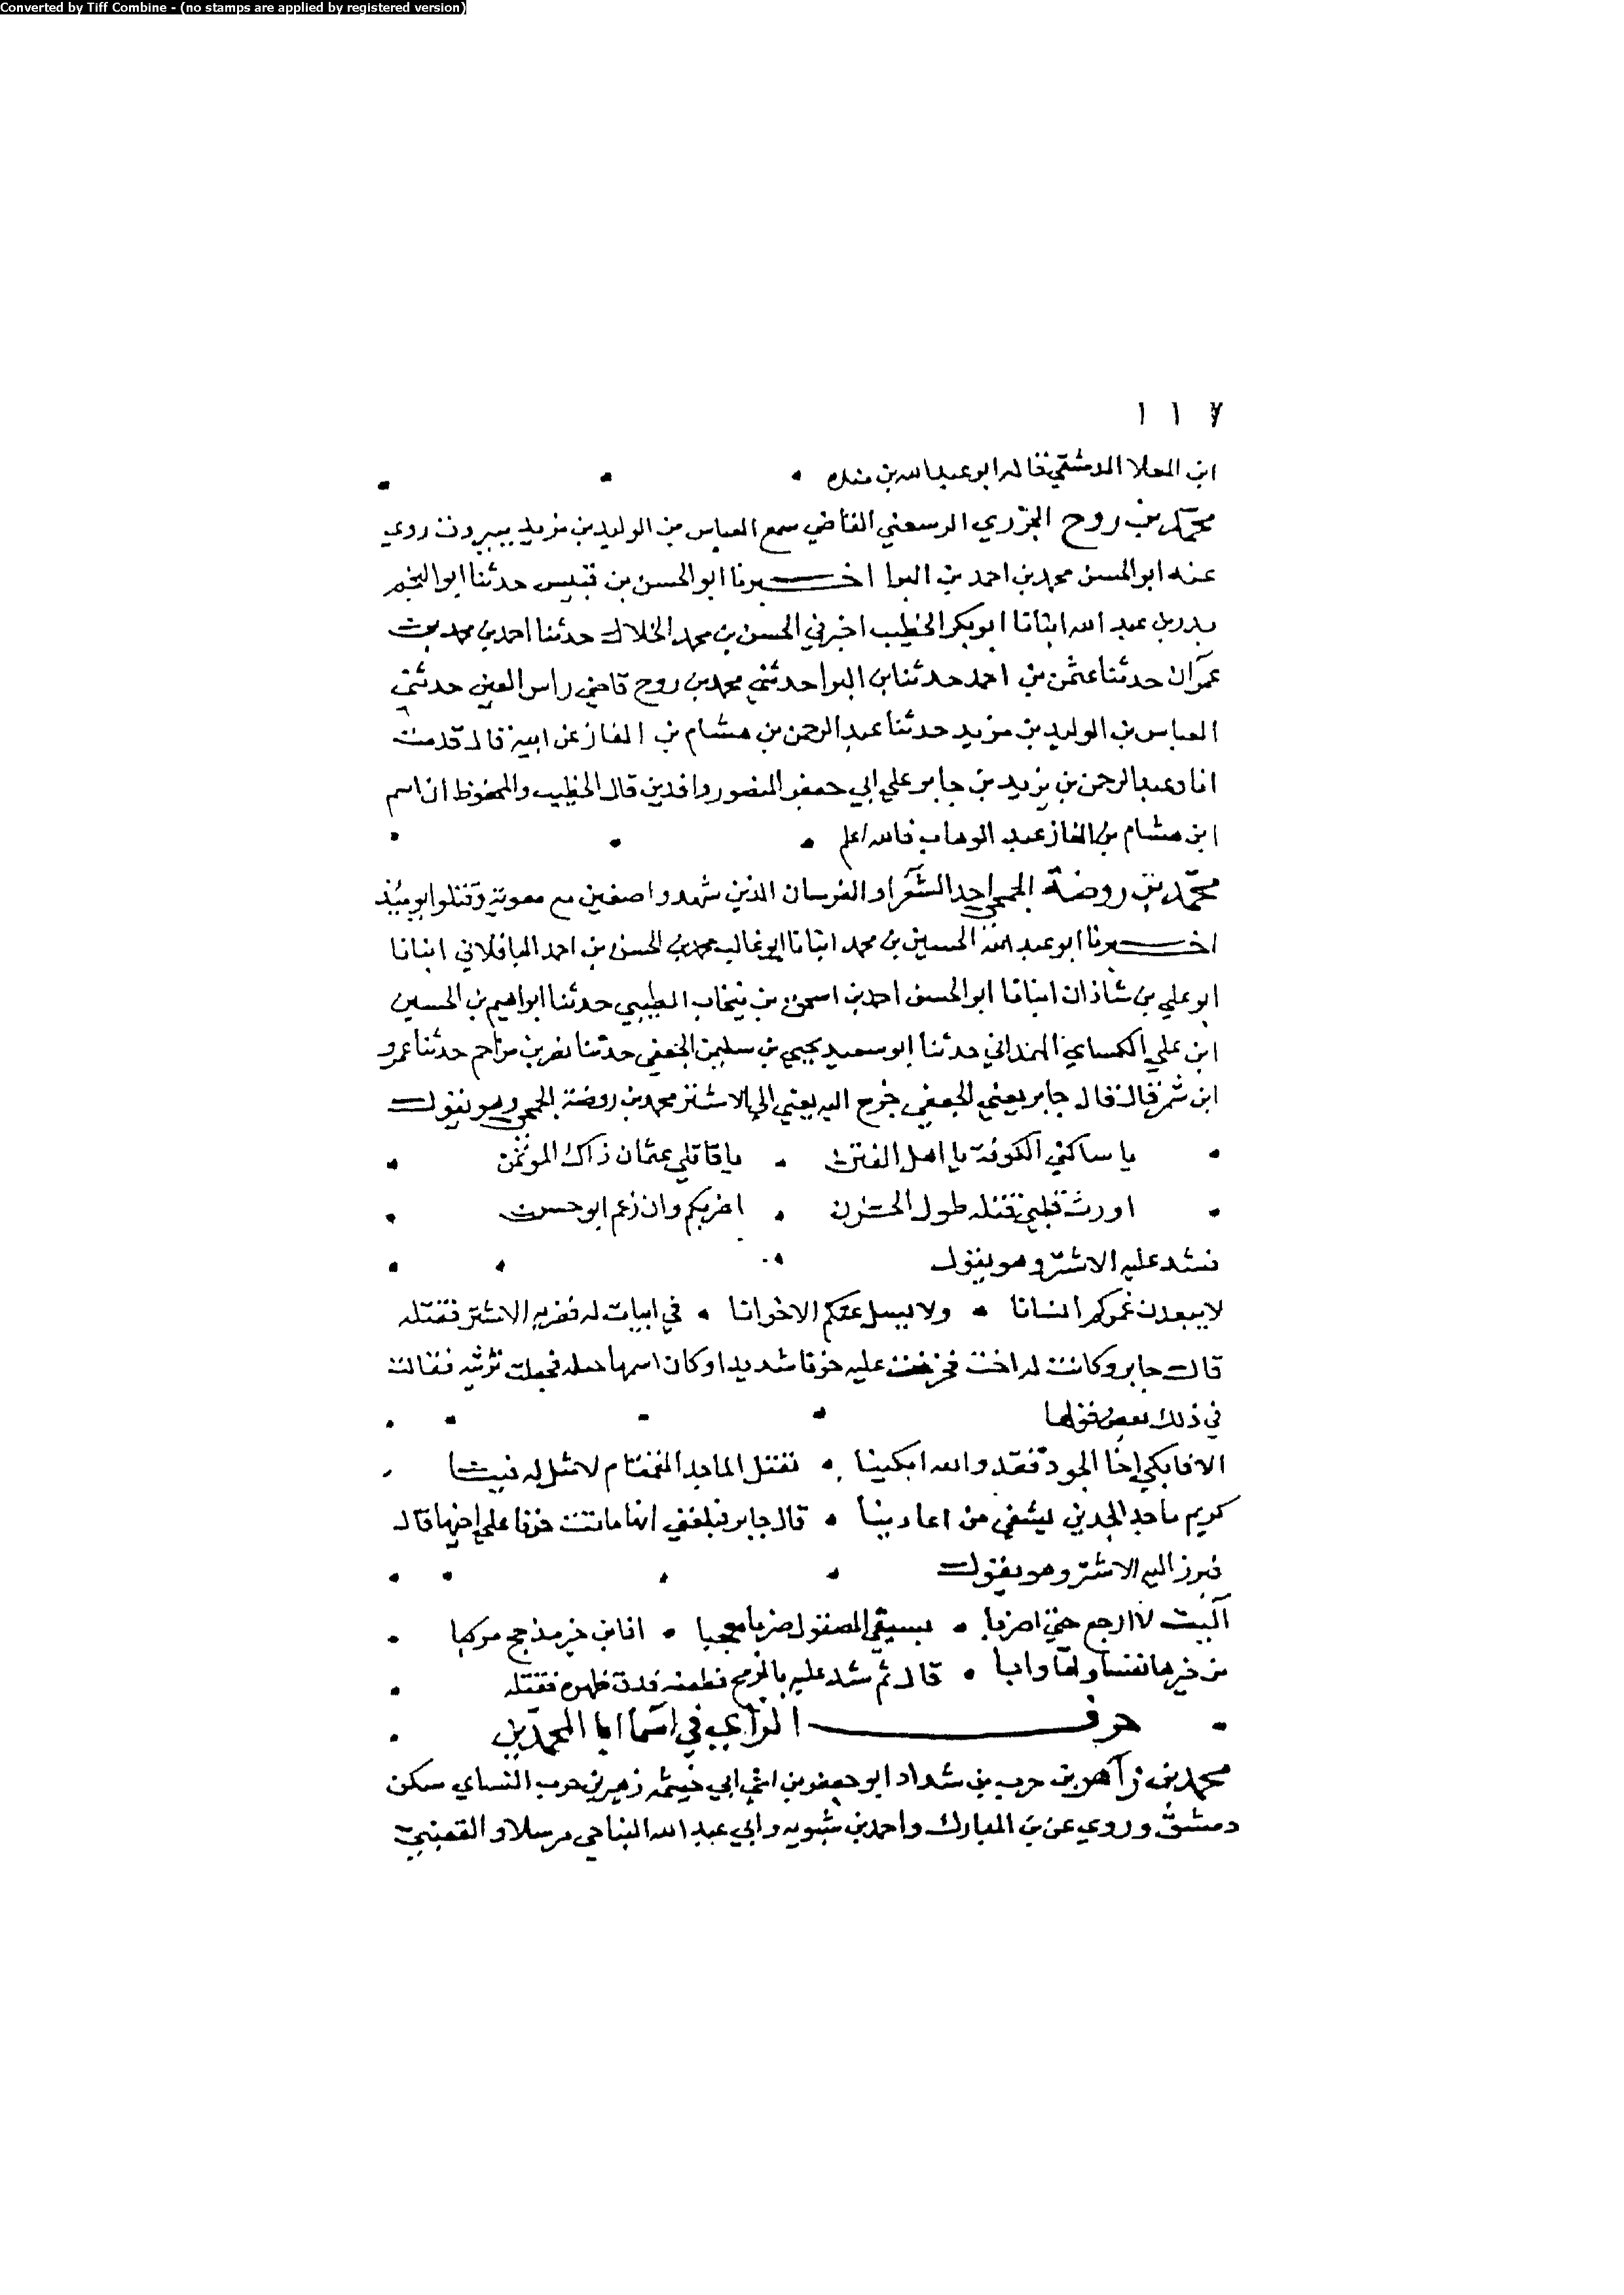 Converted by Tiff Combine - (no stamps are applied by registered version)
١١٧
ابن العلا الدمشقي قاله ابو عبدالله بن منده
محمد بن روح الجزري الرسعني القاضي سمع العباس بن الوليد بن مزيد ببيروت روى
عنه ابو الحسن محمد بن احمد بن البوا اخبرنا ابو الحسن بن قبيس حدثنا ابو النجم
بدر بن عبد الله انبانا ابو بكر الخطيب اخبرني الحسن بن محمد الخلال حدثنا احمد بن محمد بن
عمران حدثنا عثمن بن احمد حدثنا بن البوا حدثني محمد بن روح قاضي راس العين حدثني
العباس بن الوليد بن مزيد حدثنا عبد الرحمن بن هشام بن الغاز عن ابيه قال قدمت
انا وعبد الرحمن بن يزيد بن جابر على ابي جعفر المنصور وافدين قال الخطيب والمحفوظ ان اسم
ابن هشام بن الغاز عبد الوهاب فالله اعلم
محمد بن روضة الجمحي احد الشعرا والفرسان الذين شهدوا صفين مع معوية وقتلوا يوميذ
اخبرنا ابو عبد الله الحسين بن محمد انبانا ابو غالب محمد بن الحسن بن احمد الباقلاني انبانا
ابو علي بن شاذان انبانا ابو الحسن احمد بن اسحق بن نيخاب الطيبي حدثنا ابراهيم بن الحسين
ابن علي الكساي الهمداني حدثنا ابو سعيد يحيى بن سليمن الجعفي حدثنا نصر بن مزاحم حدثنا عمرو
ابن شمر قال فقال جابر يعني الجعفي خرج اليه يعني الى الاشتر محمد بن روضة الجمحي وهو يقول
يا ساكني الكوفة يا اهل الفتن يا قاتلي عثمان ذاك المؤتمن
اورث قلبي قتله طول الحزن اضربكم وان زعم ابو حسن
فشد عليه الاشتر وهو يقول
لا يبعدن غيركم انسانا ولا يسل عنكم الاخوانا في ابيات له فضربه الاشتر فقتله
قال جابر وكانت له اخت فحزنت عليه حزنا شديدا وكان اسمها فجعلت ترثيه فقالت
في ذلك بعض قولها
الا فابكي اخا الجود فقد والله ابكينا بقتل الماجد القمقام لا مثل له فينا
كريم ماجد الجدين يشفي من اعادينا قال جابر فبلغني انها ماتت حزنا على اخيها قال
فبرز اليهم الاشتر وهو يقول
آليت لا ارجع حتى اضربا بسيفي المصقول ضربا معجبا انا ابن خير مذحج مركبا
من خيرها نفسا واما وابا قال ثم شد عليه بالرمح فطعنه فدق ظهره فقتله
حرف الزاي في اسما ابا المحمدين
محمد بن زاهر بن حرب بن شداد ابو جعفر بن اخي ابي خيثمه زهير بن حرب النساي سكن
دمشق وروى عن بن المبارك واحمد بن شبويه وابي عبد الله النباجي مرسلا والقعنبي